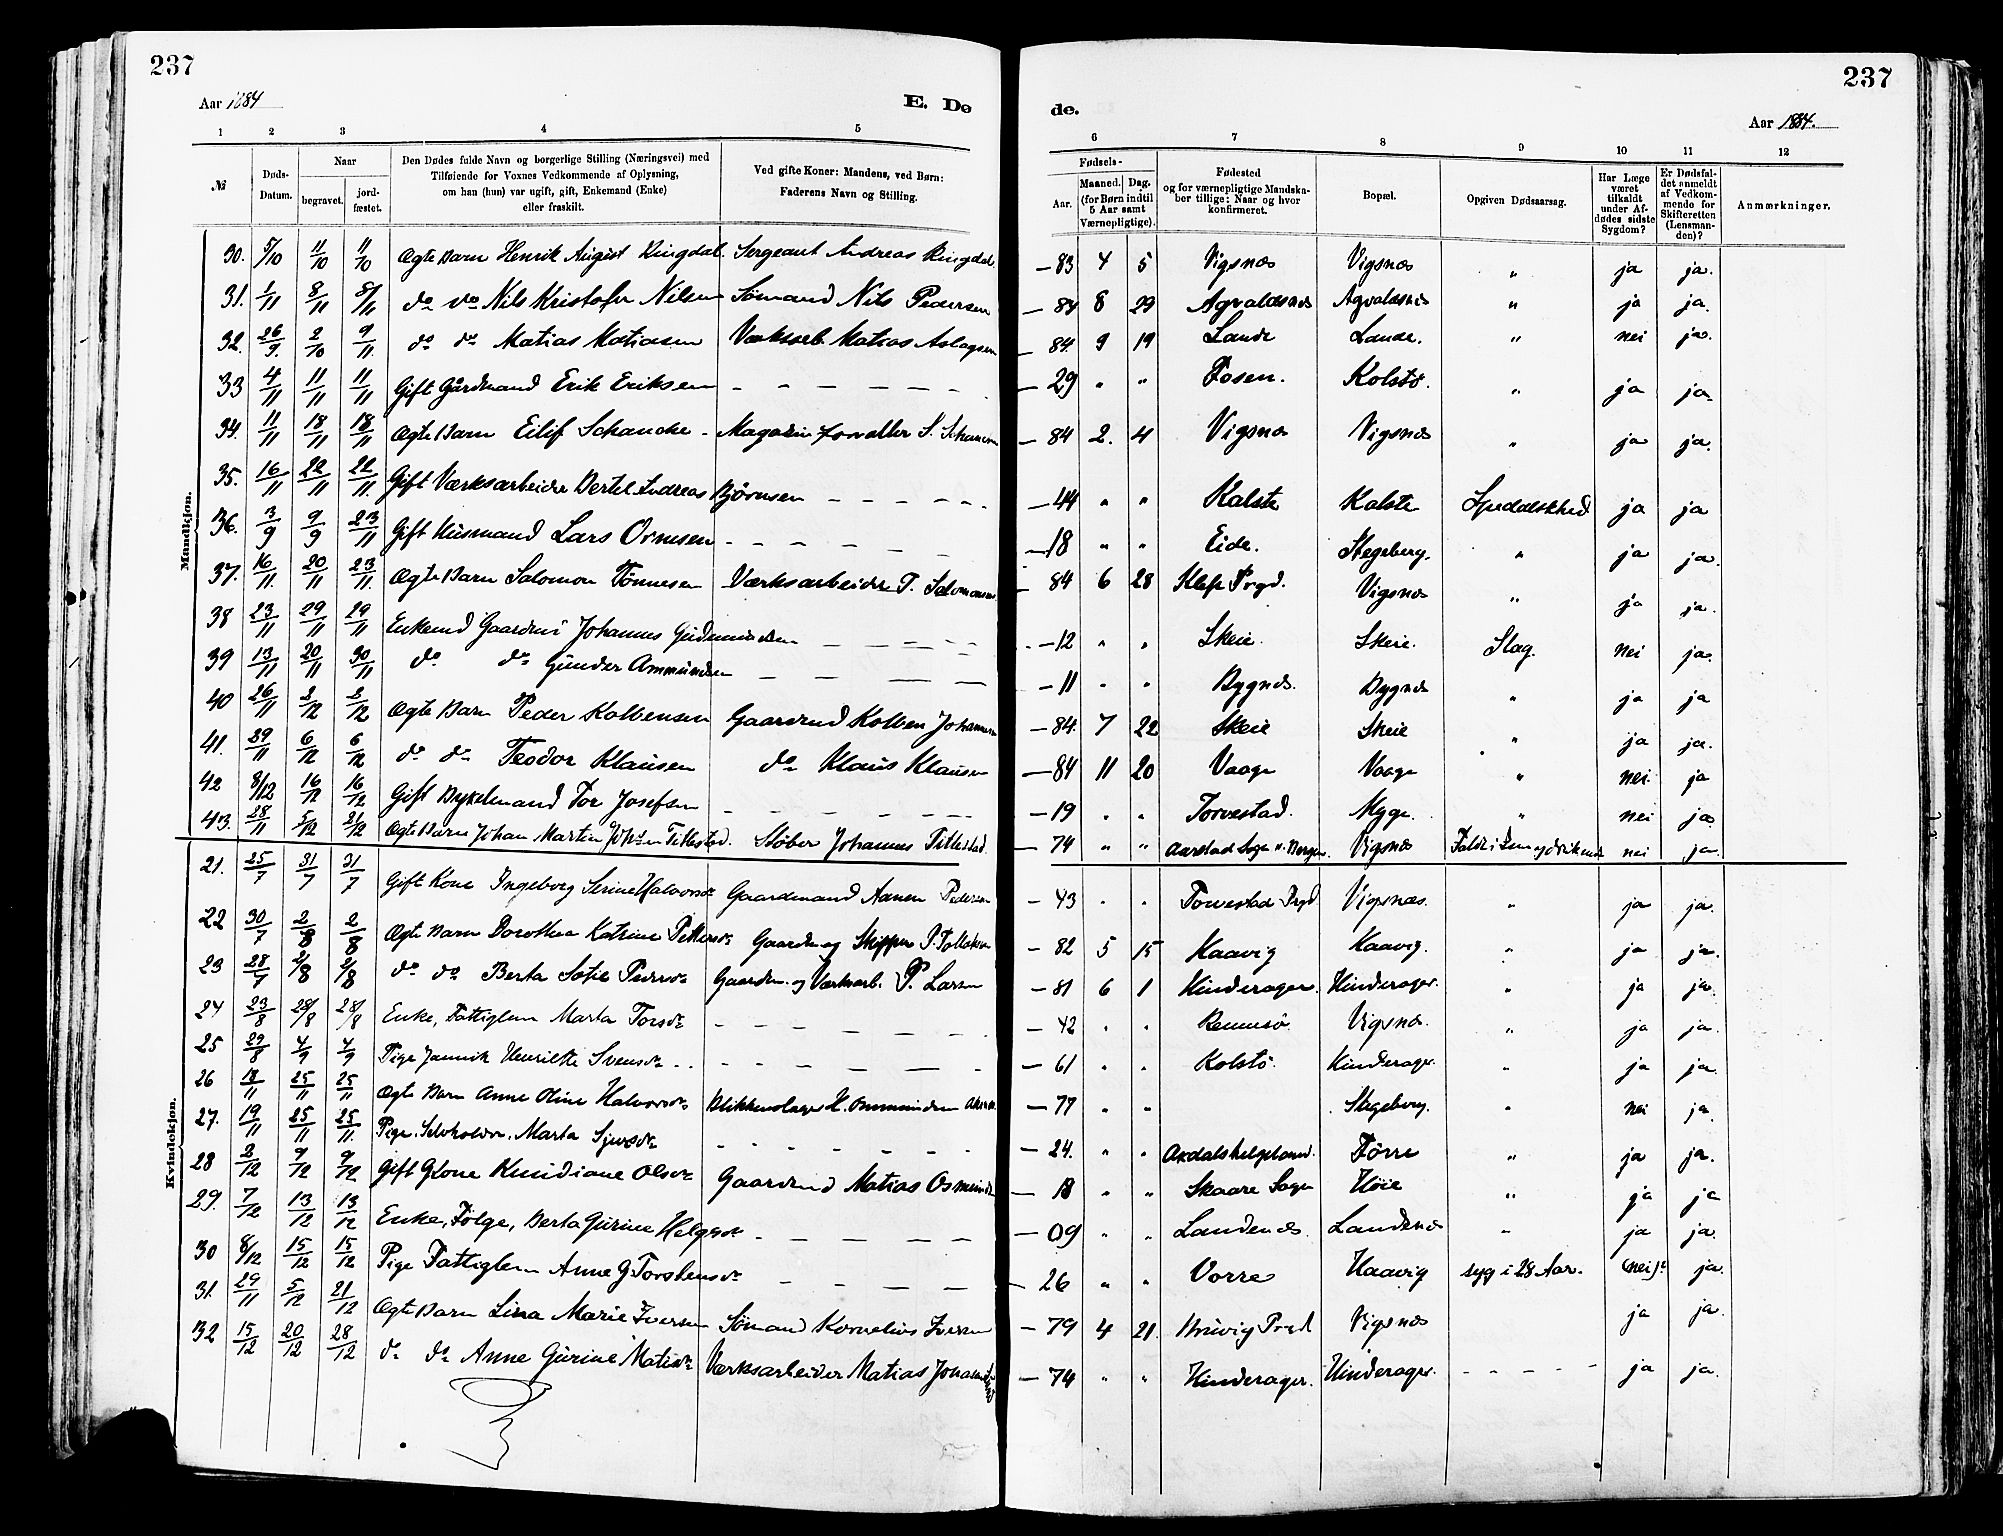 237
Aar 1884
E. Dø
1 2 3 4 5
№
Døds-Datum.
Naar
begravet.
jord-fæstet.
Den Dødes fulde Navn og borgerlige Stilling (Næringsvei) med
Tilføiende for Voxnes Vedkommende af Oplysning,
om han (hun) var ugift, gift, Enkemand (Enke)
eller fraskilt.
Ved gifte Koner: Mandens, ved Børn:
Faderens Navn og Stilling.
Mandkjøn.
30. 5/10 11/10 11/10 Ægte Barn Henrik August Ringdal. Sergeant Andreas Ringdal
31. 1/11 8/11 8/11 do do Nils Kristofer Nilsen Sømand Nils Pedersen
32. 26/9 2/10 9/11 do do Matias Matiasen Værksarb. Matias Aslagsen
33 4/11 11/11 11/11 Gift Gårdmand Erik Eriksen - - - - - -
34. 11/11 18/11 18/11 Ægte Barn Eilif Schancke - Magasinforvalter S. Schancke
35. 16/11 22/11 22/11 Gift Værksarbeider Bertel Andreas Bjørnsen - - - - -
36. 3/9 9/9 23/11 Gift Husmand Lars Ormsen - - - - - -
37. 16/11 20/11 23/11 Ægte Barn Salomon Tønnesen Værksarbeider T. Salomonsen
38 23/11 29/11 29/11 Enkemd Gaardm: Johannes Gudmundsen - - - -
39 13/11 20/11 30/11 do do Gunder Ammundsen - - - - -
40 26/11 2/12 2/12 Ægte Barn Peder Kolbensen Gaardmd Kolben Johannesen
41. 29/11 6/12 6/12 do do Teodor Klausen do Klaus Klausen
42 8/12 16/12 16/12 Gift Bykelmand Tor Josefsen - - - - - -
43. 28/11 5/12 21/12 Ægte Barn Johan Martin Johsen Tittestad. Støber Johannes Tittestad
Kvindekjøn.
21. 25/7 31/7 31/7 Gift Kone Ingeborg Serine Halvorsdr Gaardmand Aanen Pedersen
22 30/7 2/8 2/8 Ægte Barn Dorothea Katrine Pettersdr Gaardm og Skipper P. Tollaksen
23 28/7 2/8 2/8 do do Berta Sofie Pedersdr Gaardm. og Værksarb. P. Larsen
24 23/8 28/8 28/8 Enke, Fattiglem Marta Torsdr - - - - - -
25 29/8 4/9 4/9 Pige Jannik Henriette Svensdr - - - - - - -
26 18/11 25/11 25/11 Ægte Barn Anne Oline Halvorsdr Blikkenslager H. Ommundsen
27. 19/11 25/11 25/11 Pige. Selvholder. Marta Sjursdr - - - - - -
28 2/12 9/12 9/12 Gift Kone Knudiane Olsdr Gaardmd Matias Osmundsen
29. 7/12 13/12 13/12 Enke, Følge, Berta Gurine Helgesdr - - - - -
30 8/12 15/12 15/12 Pige Fattiglem Anne G Torstensdr - - - -
31. 29/11 5/12 21/12 Ægte Barn Lina Marie Iversen Sømand Kornelius Iversen
32 15/12 20/12 28/12 do do Anne Gurine Matisdr Værksarbeider Matias Johannesen
237
de.
Aar 1884.
6 7 8 9 10 11 12
Fødsels-
Aar. Maaned. Dag.
(for Børn indtil
5 Aar samt
Værnepligtige).
Fødested
og for værnepligtige Mandska-
ber tillige: Naar og hvor
konfirmeret.
Bopæl.
Opgiven Dødsaarsag.
Har Læge
været
tilkaldt
under Af-
dødes sidste
Sygdom?
Er Dødsfal-
det anmeldt
af Vedkom-
mende for
Skifteretten
(Lensman-
den)?
Anmærkninger.
- 83 4 5 Vigsnæs Vigsnæs " ja ja.
- 84 8 29 Agvaldsnæs Agvaldsnæs " ja ja.
- 84. 9 19 Lande Lande. " nei ja.
- 29 " " Fosen. Kolstø. " ja ja.
- 84 2. 4 Vigsnæs Vigsnæs " ja ja.
- 44 " " Kalstø Kalstø Spedalskhed ja ja
- 18 " " Eide. Stegeberg. " ja ja.
- 84 6 28 Klep Prgd. Vigsnæs " ja ja.
- 12 " " Skeie. Skeie. Slag. nei ja.
- 11 " " Bygnæs. Bygnæs " ja ja
- 84. 7 22 Skeie Skeie " ja ja.
- 84 11 20 Vaage Vaage " nei ja
- 19 " " Torvestad. Myge. " nei ja.
- 74 " " Aarstad Sogn v. Bergen. Vigsnæs nei ja
- 43 " " Torvestad Prgd Vigsnæs. " ja ja.
- 82 5 15 Haavig Haavig. " ja ja.
- 81 6 1 Hinderager. Hinderager. " ja ja.
- 42 " " Rennesø Vigsnæs. " ja ja.
- 61 " " Kolstø. Hinderager. " ja ja.
- 77 " " Stegeberg. " nei ja.
- 24. " " Førre " ja ja.
- 18 " " Skaare Sogn Høie " ja ja
- 09 " " Landenæs Landenæs " ja ja.
- 26 " " Vorre Haavig syg i 28 Aar. (nei)? ja.
- 79 4 21 Bruvig Prgd Vigsnæs ja ja.
- 74 " " Hinderager. Hinderager. - - - - - ja ja.